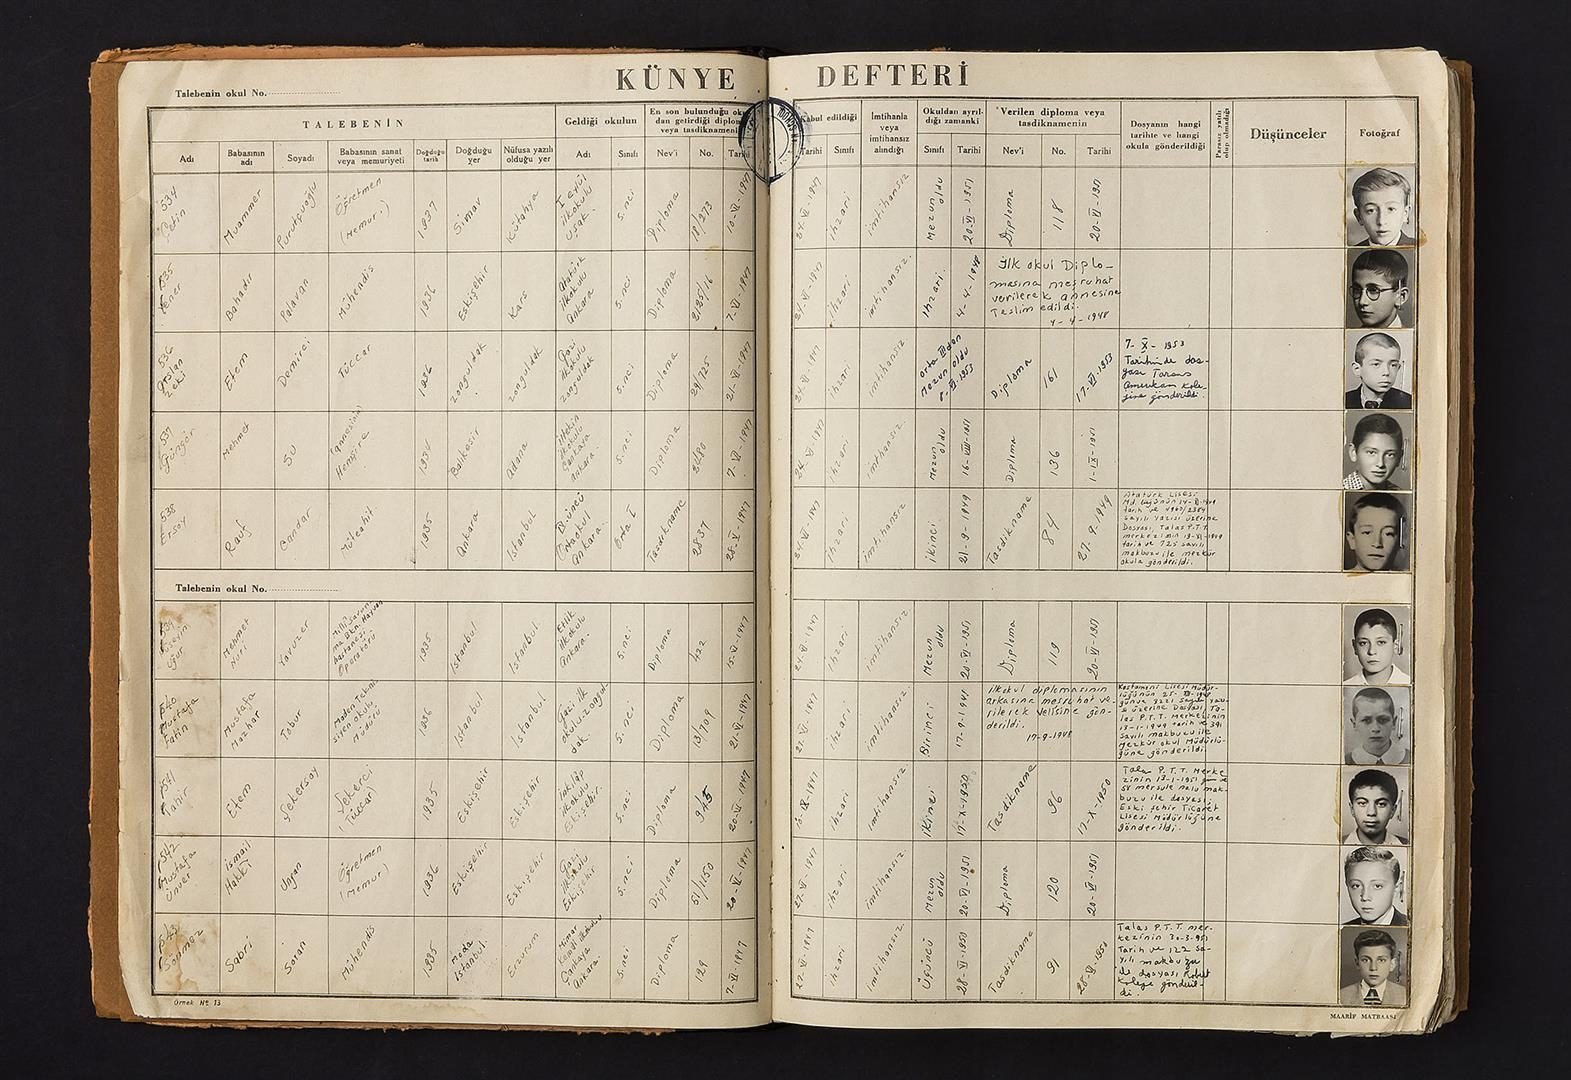 KÜNYE DEFTERİ
Talebenin okul No.
TALEBENİN
Geldiği okulun
En son bulunduğu okuldan getirdiği diploma veya tasdiknamenin
Kabul edildiği
İmtihanla veya imtihansız alındığı
Okuldan ayrıldığı zamanki
Verilen diploma veya tasdiknamenin
Dosyanın hangi tarihte ve hangi okula gönderildiği
Parasız yatılı olup olmadığı
Düşünceler
Fotoğraf
Adı
Babasının adı
Soyadı
Babasının sanat veya memuriyeti
Doğduğu tarih
Doğduğu yer
Nüfusa yazılı olduğu yer
Adı
Sınıfı
Nev'i
No.
Tarihi
Tarihi
Sınıfı
Sınıfı
Tarihi
Nev'i
No.
Tarihi
534 Çetin
Muammer
Öğretmen (Memur)
1937
Simav
Kütahya
1 eylül ilkokulu Uşak.
5.nci
Diploma
18/273
10-VI-1947
ihzari
imtihansız
Mezun oldu
20-VI-1951
Diploma
118
20-VI-1951
535
Bahadır
Palavan
Mühendis
1936
Eskişehir
Kars
Atatürk ilkokulu Ankara
5.nci
Diploma
2185/16
7-VI-1947
ihzari
imtihansız.
ihzari.
4-4-1948
İlk okul Diplo-
masına meşruhat
verilerek annesine
Teslim edildi.
4-4-1948
536 Arslan Zeki
Etem
Demirci
Tüccar
1936
Zonguldak
Zonguldak
Gazi ilkokulu Zonguldak
5.nci
Diploma
29/725
21-VI-1947
ihzari
imtihansız
Orta III den Mezun oldu
Diploma
161
17-VI-1953
7-X-1953
Tarihinde dos-
yası Tarsus
Amerikan Kole-
jine gönderildi.
537 Güngör
Mehmet
Su
(annesinin) Hemşire
Balıkesir
Adana
Çankaya Ankara.
5.nci
Diploma
7-VI-1947
ihzari
imtihansız.
Mezun oldu
16-VIII-1951
Diploma
136
1-IX-1951
538 Ersoy
Rauf
Candar
Müteahit
1935
Ankara
İstanbul
Ortaokul Ankara.
Orta I
Tasdikname
2837
28-V-1947
ihzari
imtihansız
ikinci
21-9-1949
Tasdikname
84
27.9.1949
Atatürk Lisesi
sayılı yazısı üzerine
Dosyası, Talas P.T.T.
tarih ve 725 sayılı
makbuzu ile mezkûr
okula gönderildi.
Talebenin okul No.
Mehmet Nuri
Yavuzer
1935
İstanbul
İstanbul
Etlik ilkokulu Ankara.
5.nci
Diploma
422
15-VI-1947
ihzari
imtihansız
Mezun oldu
20-VI-1951
Diploma
119
20-VI-1951
540 Mustafa Fatin
Mustafa Mazhar
Tobur
1936
İstanbul
İstanbul
Gazi ilk okulu-Zonguldak.
5.nci
Diploma
13/709
21-VI-1947
ihzari
imtihansız
Birinci
ilkokul diplomasının
arkasına meşruhat ve-
rilerek velisine gön-
derildi.
17-9-1948
541 Tahir
Etem
Şekersoy
Şekerci (Tüccar)
1935
Eskişehir
Eskişehir
İnkılâp ilkokulu Eskişehir.
5.nci
Diploma
20-VI-1947
ihzari
imtihansız.
ikinci
17-X-1950
Tasdikname
96
17-X-1950
Talas P.T.T. Merke-
buzu ile dosyası
Eskişehir Ticaret
Lisesi Müdürlüğüne
gönderildi.
542 Mustafa Ünver
İsmail Hakkı
Ungan
Öğretmen (Memur)
1936
Eskişehir
Eskişehir
Gazi ilkokulu Eskişehir
5.nci
Diploma
51/1150
20-VI-1947
ihzari
imtihansız.
Mezun oldu
20-VI-1951
Diploma
120
20-VI-1951
543 Sönmez
Sabri
Soran
Mühendis
1935
Moda İstanbul.
Erzurum
Mimar Kemal ilkokulu Çankaya Ankara.
5.nci
Diploma
129
7-VI-1947
ihzari
imtihansız
Üçüncü
Tasdikname
91
Talas P.T.T. mer-
kezinin 30-3-951
Tarih ve 122 sa-
yılı makbuzu
ile dosyası Robert
Koleje gönderil-
di.
Örnek No 13
MAARİF MATBAASI